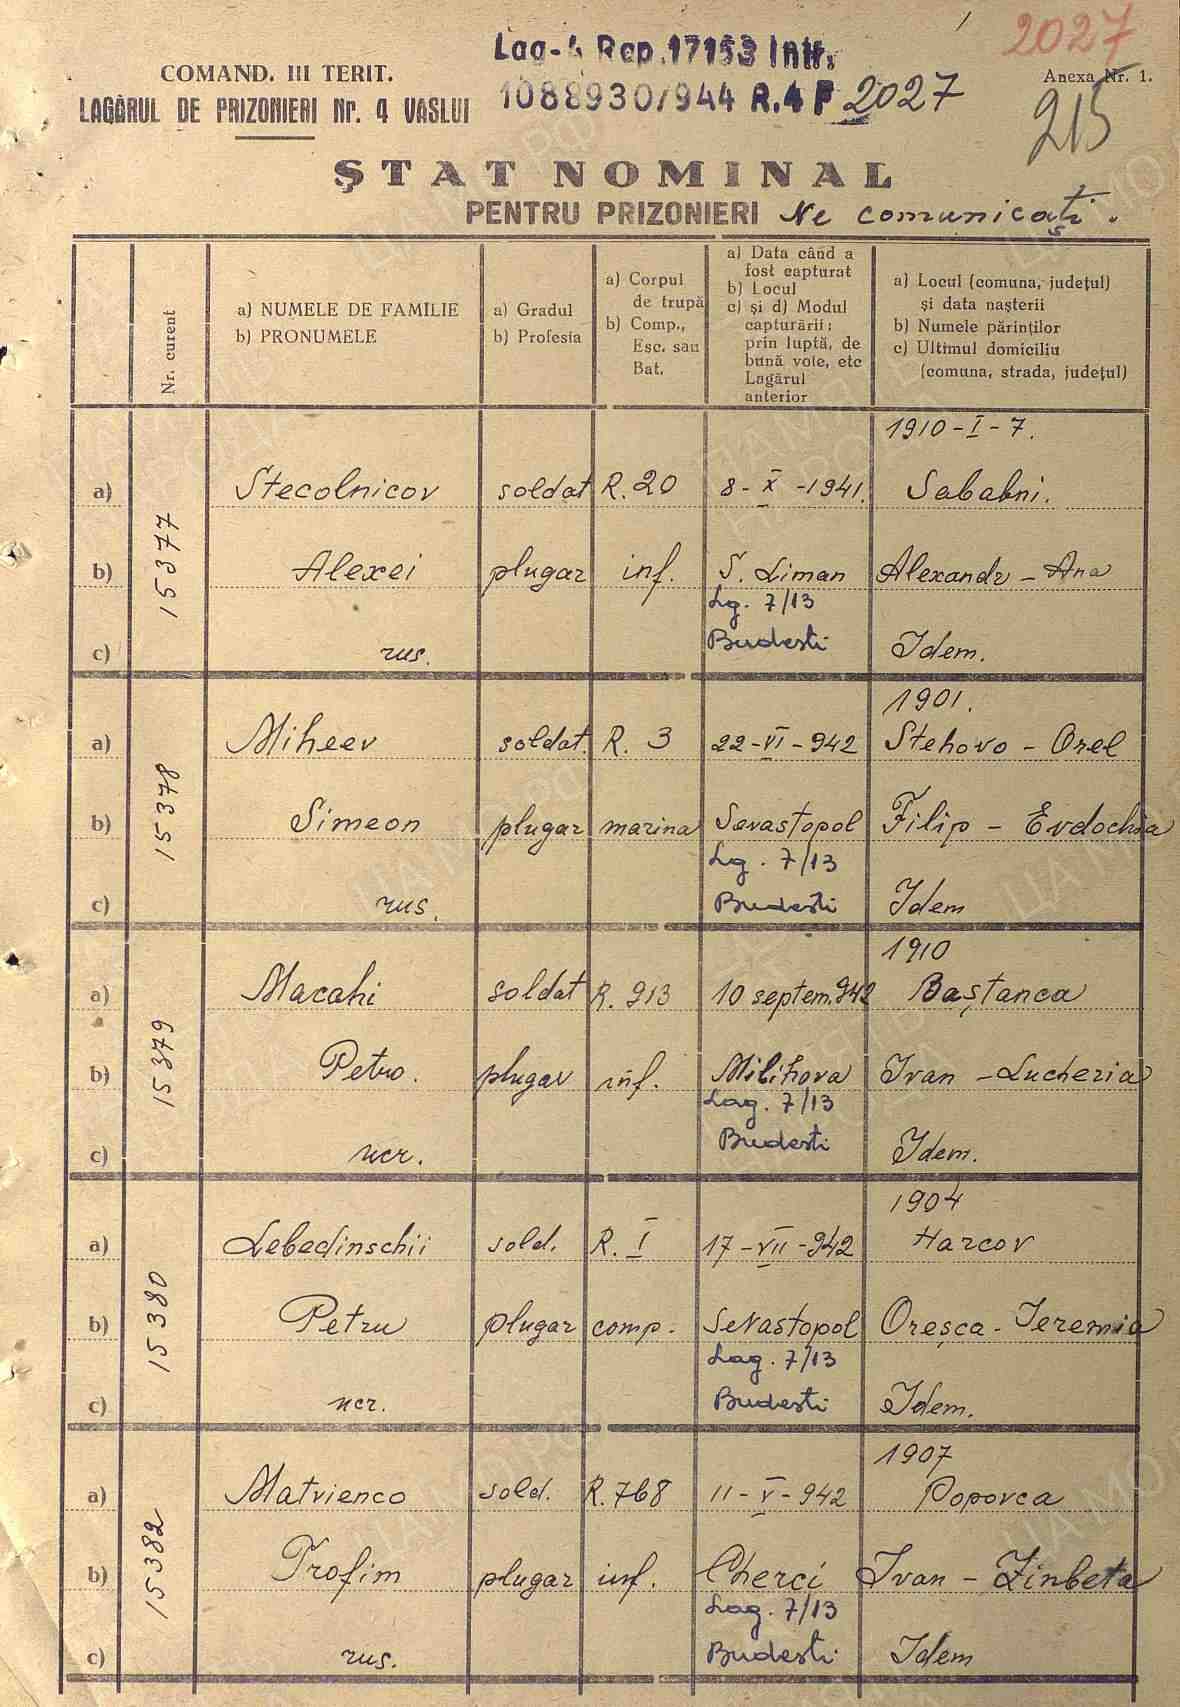 2027
Lag-4 Rep.17153 Intr.
COMAND. III TERIT.
Anexa Nr. 1.
LAGĂRUL DE PRIZONIERI Nr. 4 VASLUI
1088930/944 R.4 P 2027
215
ŞTAT NOMINAL
PENTRU PRIZONIERI Ne comunicaţi.
Nr. curent
a) NUMELE DE FAMILIE
b) PRONUMELE
a) Gradul
b) Profesia
a) Corpul
de trupă
b) Comp.,
Esc. sau
Bat.
a) Data când a
fost capturat
b) Locul
c) şi d) Modul
capturării:
prin luptă, de
bună voie, etc
Lagărul
anterior
a) Locul (comuna, judeţul)
şi data naşterii
b) Numele părinţilor
c) Ultimul domiciliu
(comuna, strada, judeţul)
1910-I-7.
a) Stecolnicov soldat R. 20 8-X-1941. Sababni.
15377
b) Alexei plugar inf. S. Liman Alexandr - Ana
Lg. 7/13
c) rus. Budesti Idem.
1901.
a) Miheev soldat. R. 3 22-VI-942 Stehovo - Orel
15378
b) Simeon plugar marina Sevastopol Filip - Evdochia
Lg. 7/13
c) rus. Budesti Idem
1910
a) Macahi soldat R. 913 10 septem. 942 Baştanca
15379
b) Petro. plugar inf. Milihova Ivan - Lucheria
Lag. 7/13
c) ucr. Budesti Idem.
1904
a) Lebedinschii sold. R. I 17-VII-942 Harcov
15380
b) Petru plugar comp. Sevastopol Oreşca - Ieremia
Lag. 7/13
c) ucr. Budesti Idem.
1907
a) Matvienco sold. R. 768 11-V-942 Popovca
15382
b) Trofim plugar inf. Cherci Ivan - Zinbeta
Lag. 7/13
c) rus. Budesti Idem